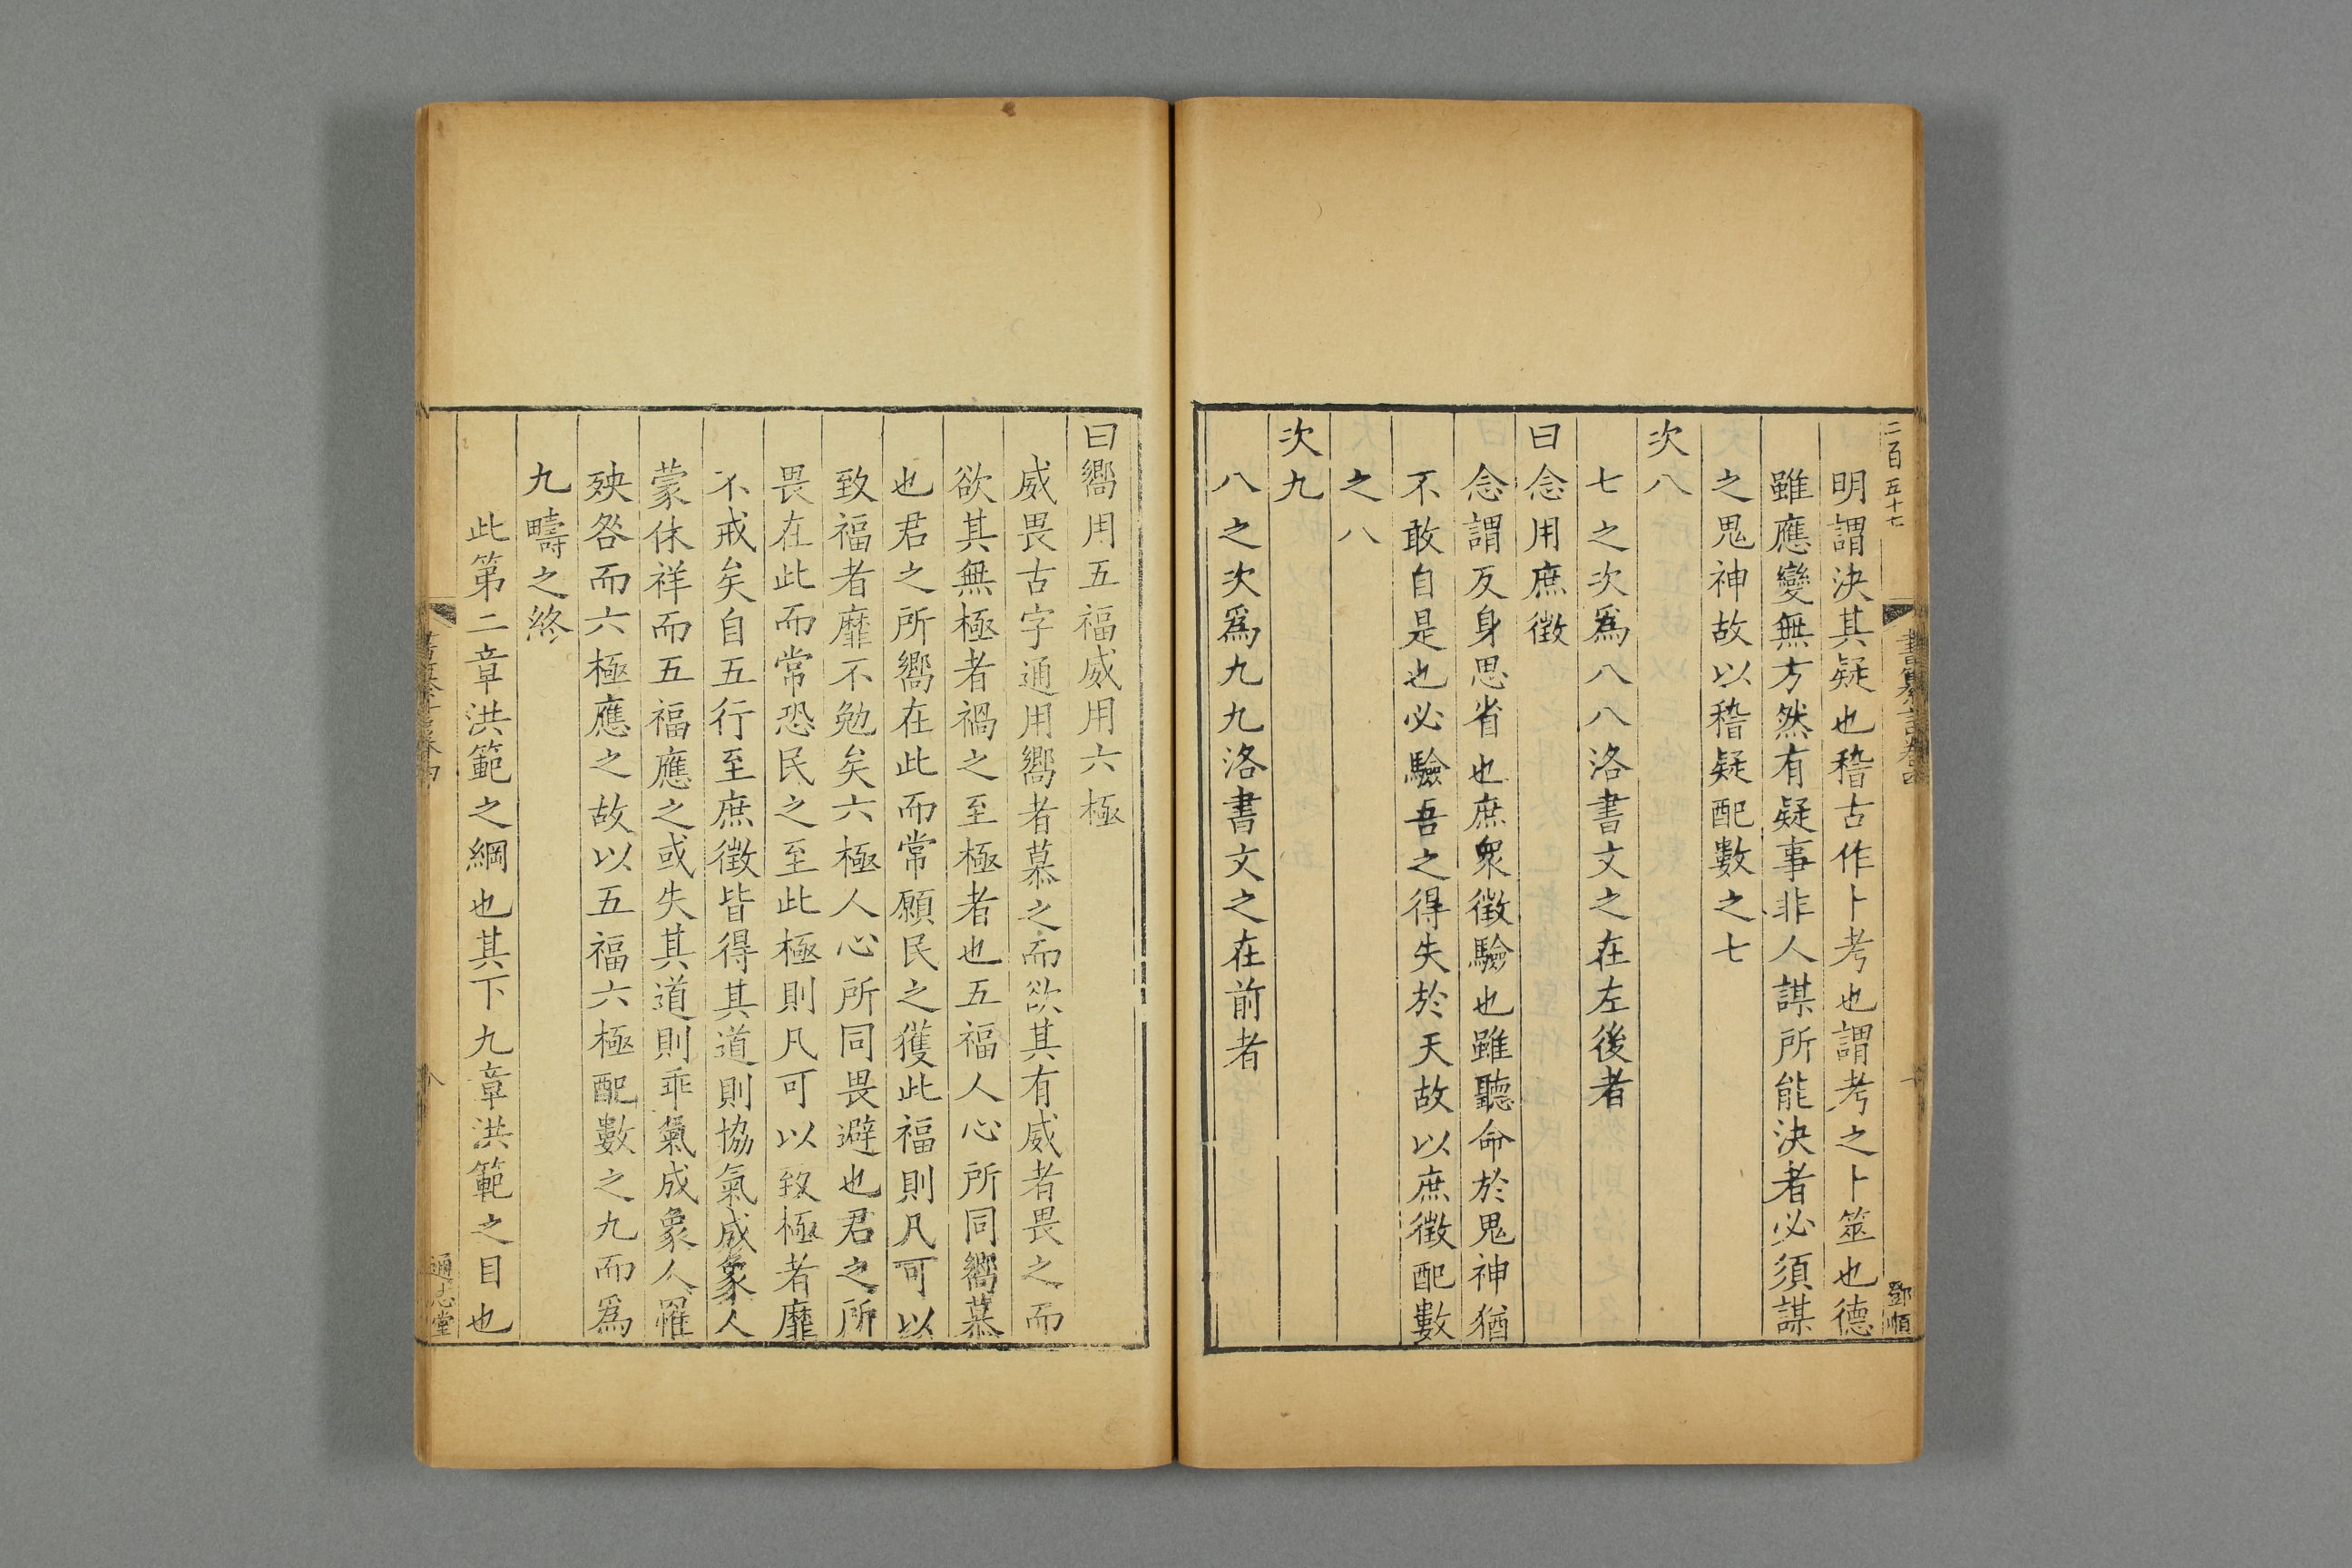 二百五十七
書纂言卷四
鄧順
明謂決其疑也稽古作卜考也謂考之卜筮也德
雖應變無方然有疑事非人謀所能決者必須謀
之鬼神故以稽疑配數之七
次八
七之次爲八八洛書文之在左後者
曰念用庶徵
念謂反身思省也庶衆徵驗也雖聽命於鬼神猶
不敢自是也必驗吾之得失於天故以庶徵配數
之八
次九
八之次爲九九洛書文之在前者
曰嚮用五福威用六極
威畏古字通用嚮者慕之而欲其有威者畏之而
欲其無極者禍之至極者也五福人心所同嚮慕
也君之所嚮在此而常願民之獲此福則凡可以
致福者靡不勉矣六極人心所同畏避也君之所
畏在此而常恐民之至此極則凡可以致極者靡
不戒矣自五行至庶徵皆得其道則協氣成象人
蒙休祥而五福應之或失其道則乖氣成象人罹
殃咎而六極應之故以五福六極配數之九而爲
九疇之終
此第二章洪範之綱也其下九章洪範之目也
通志堂